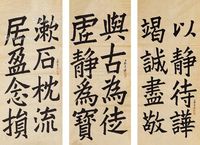 以靜待譁
竭誠盡敬
與古為徒
虛靜為寶
漱石枕流
居盈念損